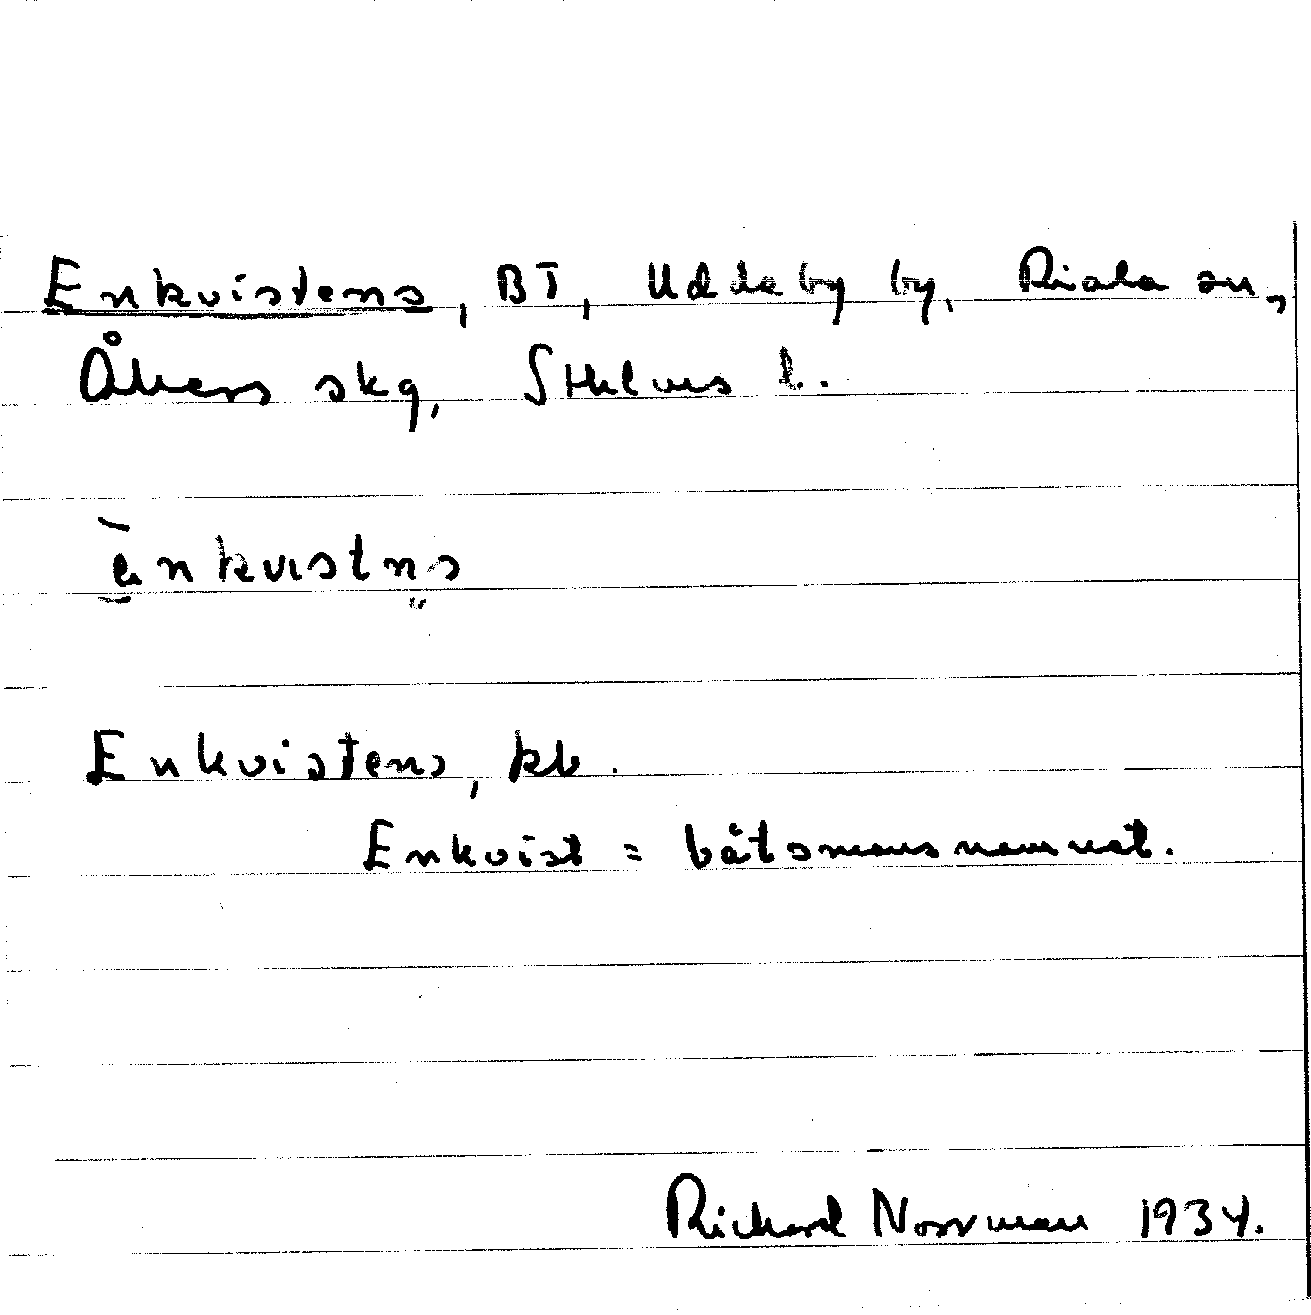 Enkvistens, BT, Uddeby by, Riala sn,
Åkers skg, Sthlms l.
ènkvistn̥s
Enkvistens, kb.
Enkvist = båtsmansnamnet.
Richard Norrman 1934.